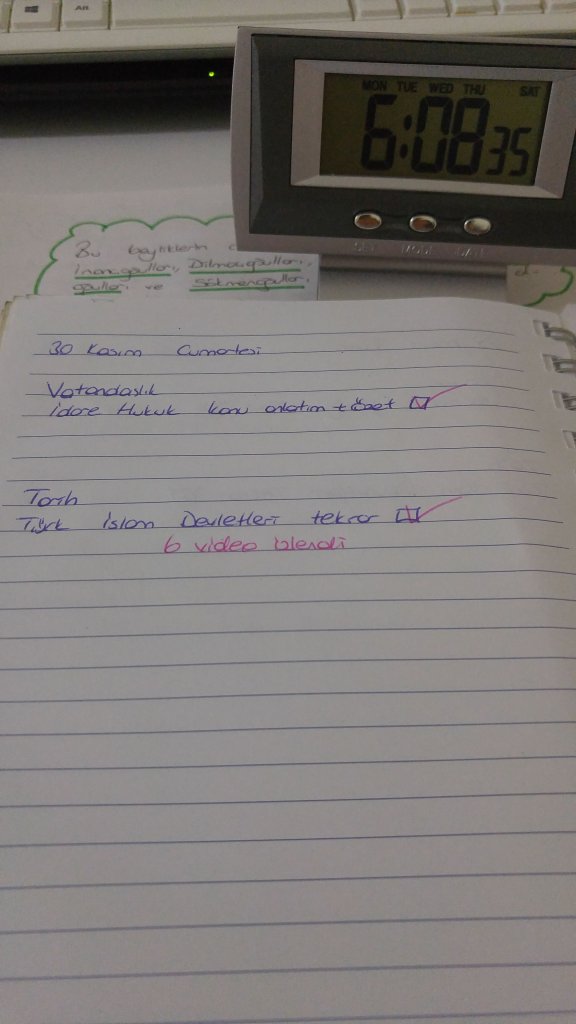 Alt
MON TUE WED THU SAT
6:08 35
SET MODE
Bu beyliklerin
İnanoğulları, Dilmaçoğulları,
oğulları ve Sökmenoğulları
30 Kasım Cumartesi
Vatandaşlık
İdare Hukuk konu anlatım + özet
Tarih
Türk İslam Devletleri tekrar
6 video izlendi